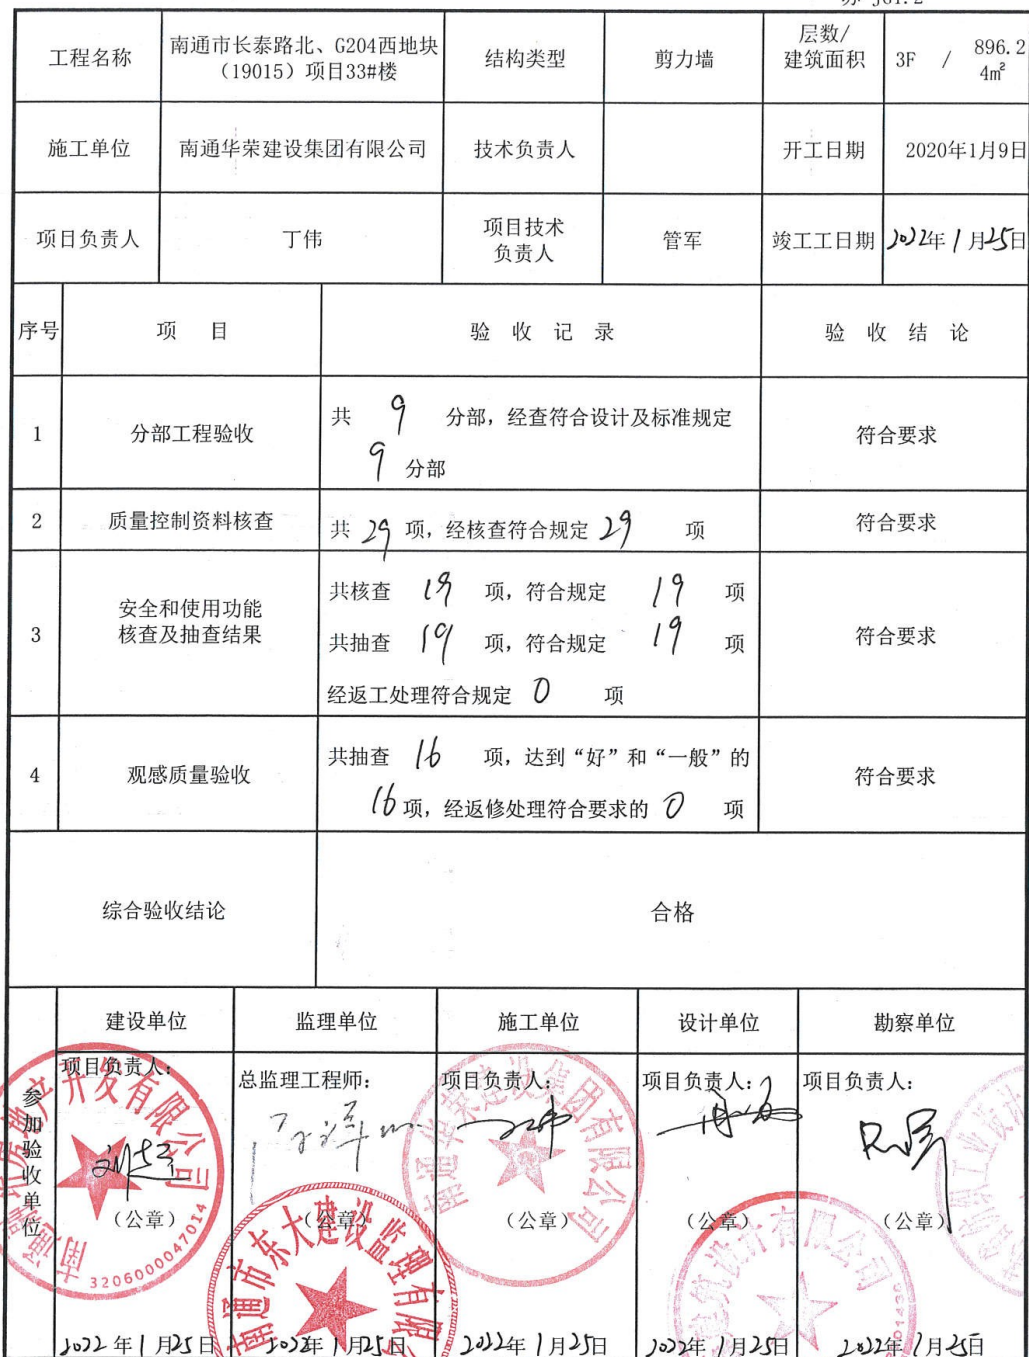 工程名称
南通市长泰路北、G204西地块
（19015）项目33#楼
结构类型
剪力墙
层数/
建筑面积
3F / 896.2
4㎡
施工单位
南通华荣建设集团有限公司
技术负责人
开工日期
2020年1月9日
项目负责人
丁伟
项目技术
负责人
管军
竣工工日期
2022年1月25日
序号
项 目
验 收 记 录
验 收 结 论
1
分部工程验收
共 9 分部，经查符合设计及标准规定
9 分部
符合要求
2
质量控制资料核查
共 29 项，经核查符合规定 29 项
符合要求
3
安全和使用功能
核查及抽查结果
共核查 19 项，符合规定 19 项
共抽查 19 项，符合规定 19 项
经返工处理符合规定 0 项
符合要求
4
观感质量验收
共抽查 16 项，达到“好”和“一般”的
16 项，经返修处理符合要求的 0 项
符合要求
综合验收结论
合格
参加验收单位
建设单位
监理单位
施工单位
设计单位
勘察单位
项目负责人：
总监理工程师：
项目负责人：
项目负责人：
项目负责人：
（公章）
（公章）
（公章）
（公章）
（公章）
房地产开发有限公司
3206000047014
南通市东大建设监理有限
南通华荣建设集团有限公司
建筑设计有限公司
2022年1月25日
2022年1月25日
2022年1月25日
2022年1月25日
2022年1月25日